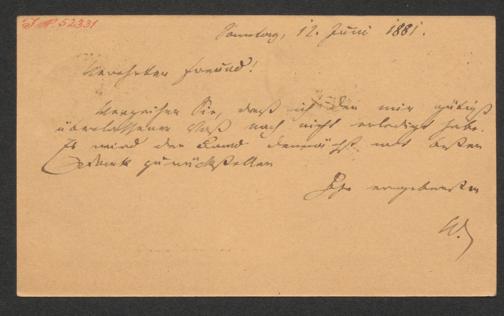 I.N. 52331
Sonntag, 12. Juni 1881.
Verehrter Freund!
Verzeihen Sie, daß ich den mir gütigst
überlassenen noch nicht erledigt habe.
Es wird der Band demnächst mit bestem
Danke zurückgestellt
Ihr ergebenster
W.